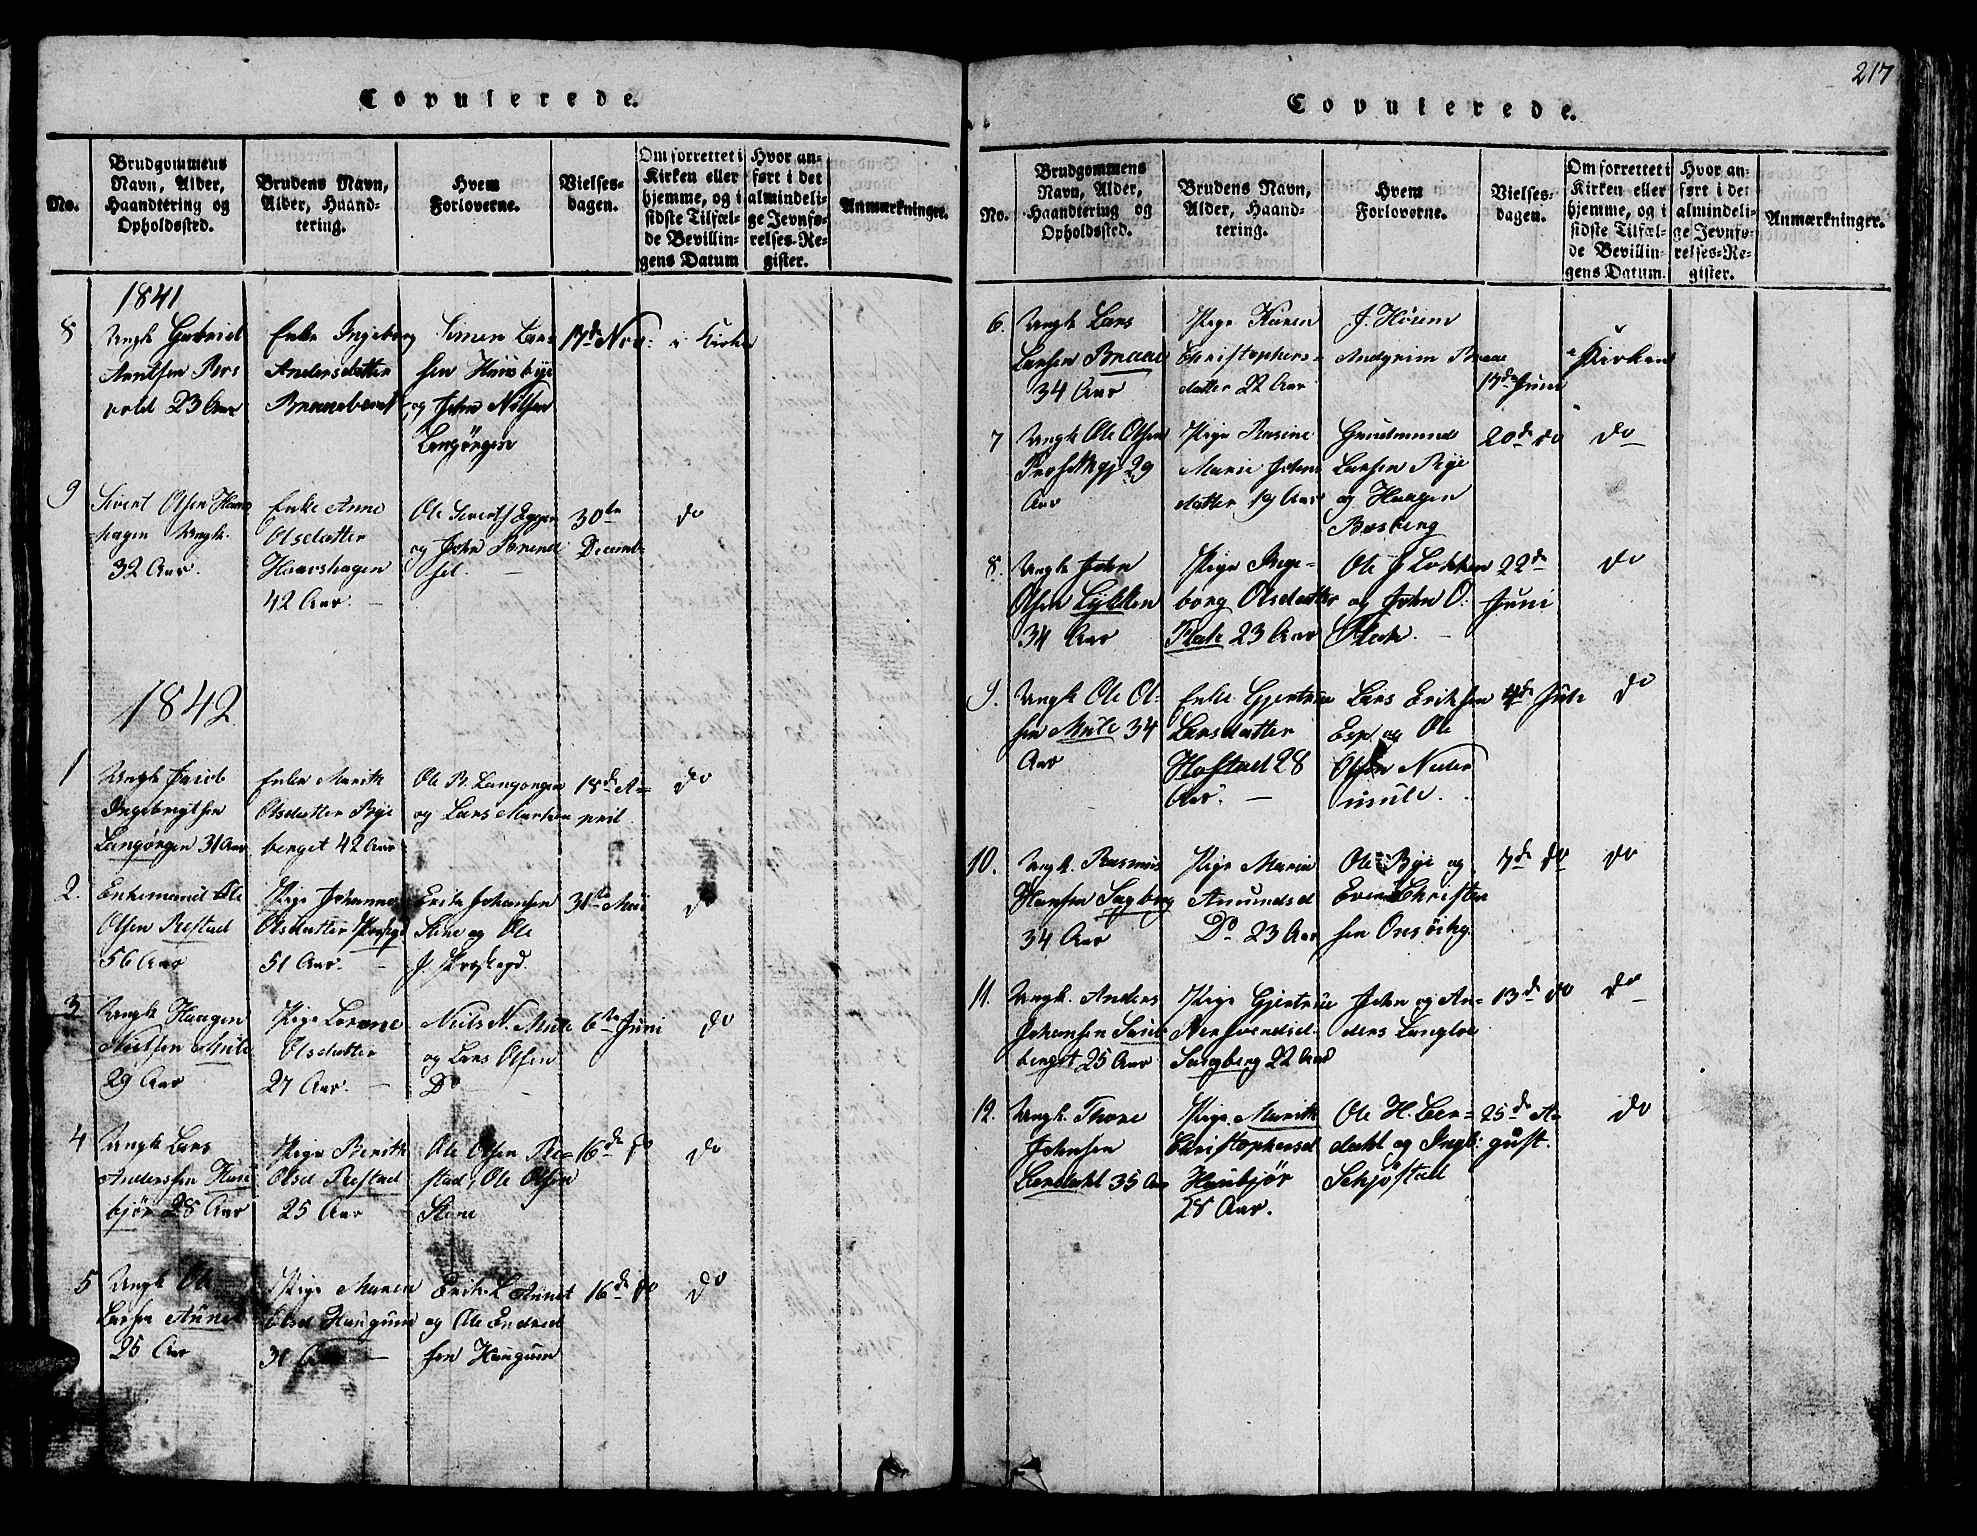 Copulerede.
No.
Brudgommens
Navn, Alder,
Haandtering og
Opholdssted.
Brudens Navn,
Alder, Haand-
tering.
Hvem
Forloverne.
Vielses-
dagen.
Om forrettet i
Kirken eller
hjemme, og i
sidste Tilfæl-
de Bevillin-
gens Datum
Hvor an-
ført i det
almindeli-
ge Jevnfø-
relses-Re-
gister.
Anmærkninger.
1841
8
Ungk Gabriel
Arntsen
23 Aar
Enke Ingeborg
Andersdatter
Simen Lar-
sen
og John Nilsen
Langørgen
17de Nov:
i Kirken
9
Sivert Olsen
hagen Ungk.
32 Aar.
Enke Anne
Olsdatter
Haarshagen
42 Aar. —
Ole Siverts Eggen
og John
30te
Decemb-
do
1842
1
Ungk Jacob
Ingebrigtsen
Langørgen 31 Aar
Enke Marith
Olsdatter Bye
berget 42 Aar
Ole B. Langørgen
og Lars Morten
18de A-
pril
do
2.
Enkemand Ole
Olsen Restad
56 Aar
Pige Johanna
Olsdatter
51 Aar. —
Erik Johansen
Stene og Ole
J. Præstegd.
31te Mai
do
3
Ungk Haagen
Nielsen Mule
29 Aar
Pige
Olsdatter
27 Aar. —
Niels N. Mule
og Lars Olsen
Do —
6te Juni
do
4
Ungk Lars
Anderssen Hau
bjør 28 Aar
Pige Berith
Olsd Restad
25 Aar
Ole Olsen Re-
stad, Ole Olsen
Stene
16de do
do
5
Ungk Ole
Larsen Aunet
25 Aar
Pige Maren
Olsd Haugum
31 Aar —
Erik L Aunet
og Ole Endred
sen Haugum
16de do
do
217
Copulerede.
No.
Brudgommens
Navn, Alder,
Haandtering og
Opholdssted.
Brudens Navn,
Alder, Haand-
tering.
Hvem
Forloverne.
Vielses-
dagen.
Om forrettet i
Kirken eller
hjemme, og i
sidste Tilfæl-
de Bevillin-
gens Datum.
Hvor an-
ført i det
almindeli-
ge Jevnfø-
relses-Re-
gister.
Anmærkninger.
6.
Ungk Lars
Larsen Braae
34 Aar
Pige Karen
Christophers-
datter 22 Aar
Braae
17de Juni
i Kirken
7
Ungk Ole Olsen
29
Aar
Pige Rasine
Marie Johns
datter 19 Aar
Gudmund
Larsen Bye
og Haagen
Bosberg
20de do
do
8.
Ungk John
Olsen Løkken
34 Aar
Pige Inge-
borg Olsdatter
Flak 23 Aar
Ole J Løkken
og John O.
Flak. —
22de
Juni
do
9.
Ungk Ole Ol-
sen Mule 34
Aar
Enke Gjertrue
Larsdatter
Hofstad 28
Aar. —
Lars Eriksen
Esp og Ole
Olsen Neder
mule.
4de Jule
do
10.
Ungk. Rasmus
Hansen Sagberg
34 Aar
Pige Marie
Amundsd
Do 23 Aar
Ole Bye og
Even Christen
sen Onsøihg
7de do
do
11.
Ungk. Anders
Johansen
berget 25 Aar
Pige Gjertrue
Sagberg 22 Aar
John og An-
ders Langlos
13de do
do
12.
Ungk. Thore
Johnsen
Leerdahl 35 Aar
Pige Marith
Christophersd
Haubjør
28 Aar.
Ole H. Leer-
dahl og Ingb:
Schjøstad
25de A-
gust.
do